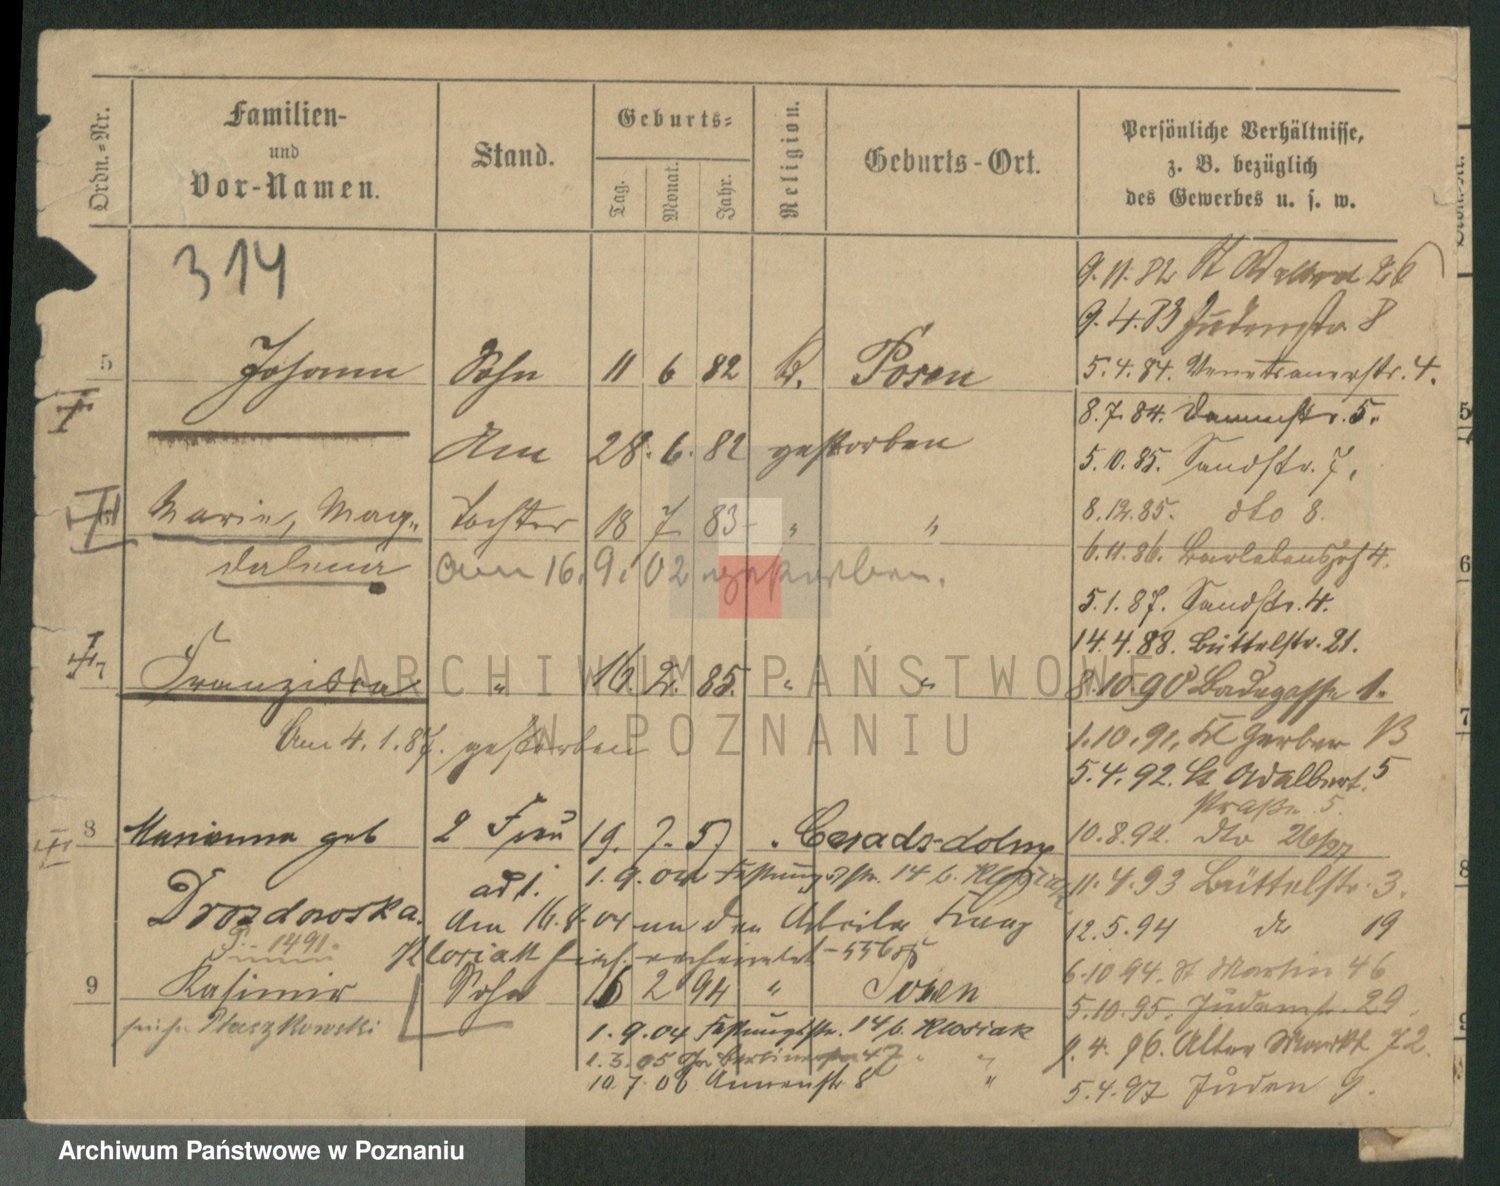 Ordn.-Nr.
Familien-
und
Vor-Namen.
Stand.
Geburts-
Tag.
Monat.
Jahr.
Religion.
Geburts-Ort.
Persönliche Verhältnisse,
z. B. bezüglich
des Gewerbes u. s. w.
314
5 Johann Sohn 11 6 82 K. Posen
Am 28. 6. 82 gestorben
Marie, Mag- Tochter 18 7 83 " "
dalena am 16. 9. 02 gestorben.
7 Franziska " 16. 2. 85. " "
Am 4. 1. 87. gestorben
8 Marianna geb 2 Frau 19. 7. 57 Cziradz-dolny
ad 1. 1. 9. 04 Festungsstr. 14 b. Klosiak
Drozdowska. Am 16. 8. 04 an den Arbeiter Franz
1491. Klosiak hier verheiratet
9 Kasimir Sohn 15 2 94 " Posen
Ptaszkowski
1. 9. 04 Festungsstr. 14 b. Klosiak
1. 3. 05 47 " "
10. 7. 06 Annenstr 8 "
9. 11. 82 St Adalbert 26
9. 4. 83 Judenstr. 8
5. 4. 84. Venetianerstr. 4.
8. 7. 84. Dammstr. 5.
5. 10. 85. Sandstr. 7.
8. 12. 85. dto 8.
6. 11. 86. Bartoldshof 4.
5. 1. 87. Sandstr. 4.
14. 4. 88. Büttelstr. 21.
8. 10. 90 Badegasse 1.
1. 10. 91. Kl Gerber 13
5. 4. 92. St Adalbert 5
straße 5.
10. 8. 92. dto
11. 4. 93 Büttelstr. 3.
12. 5. 94 do 19
6. 10 94. St Martin 46
5. 10. 95. Judenstr. 29.
9. 4. 96. Alter Markt 72.
5. 4. 97 Juden 9.
5
6
7
8
ARCHIWUM PAŃSTWOWE
W POZNANIU
Archiwum Państwowe w Poznaniu